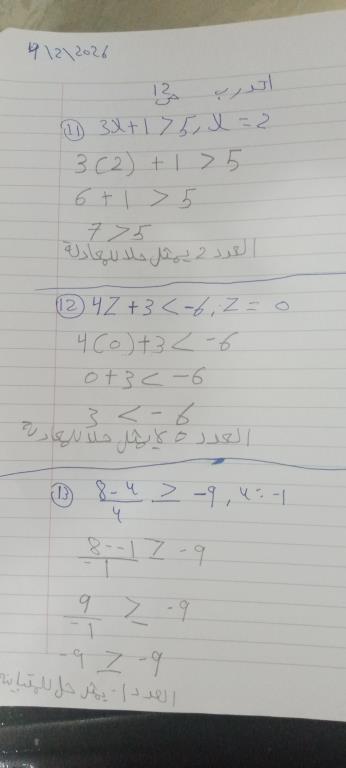 4/2/2026
اتدرب ص 12
11 3x+1>5, x=2
3(2)+1>5
6+1>5
7>5
العدد 2 يمثل حلا للمعادلة
12 4Z+3<-6, Z=0
4(0)+3<-6
0+3<-6
3<-6
العدد 0 لا يمثل حلا للمعادلة
13 8-y/y ≥ -9, y=-1
8--1/-1 ≥ -9
9/-1 ≥ -9
-9 ≥ -9
العدد -1 يمثل حل للمتباينة